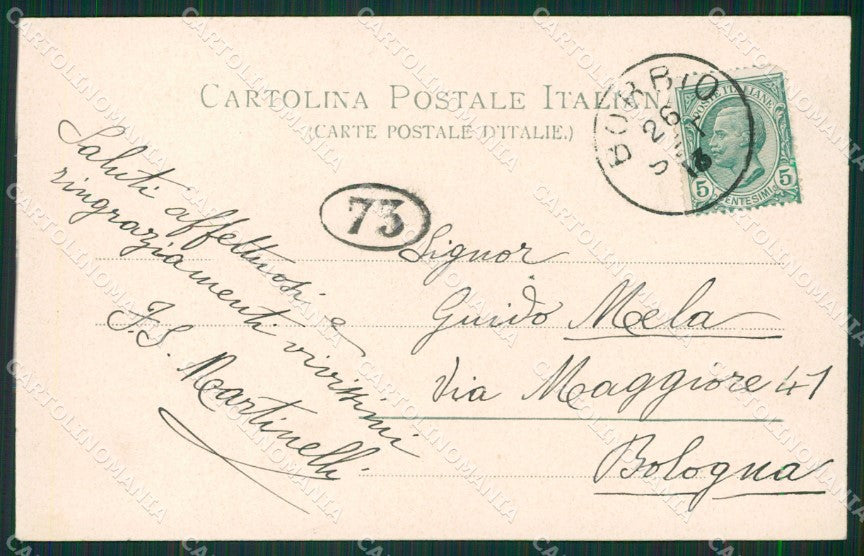 CARTOLINA POSTALE ITALIANA
(CARTE POSTALE D'ITALIE.)
BOBBIO
26
POSTE ITALIANE
5 CENTESIMI 5
73
Saluti affettuosi e
ringraziamenti vivissimi
F. S. Martinelli
Signor
Guido Mela
Via Maggiore 41
Bologna
CARTOLINOMANIA